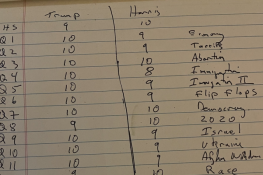 Trump Harris
HS 9 10
Q1 10 9 Economy
Q2 10 9 Tariffs
Q3 10 10 Abortion
Q4 10 8 Immigration
Q5 10 9 Immigration II
Q6 10 9 Flip Flops
Q7 10 10 Democracy
Q8 9 10 2020
Q9 10 9 Israel
Q10 10 9 Ukraine
Q11 10 9 Afghanistan
9 10 Race